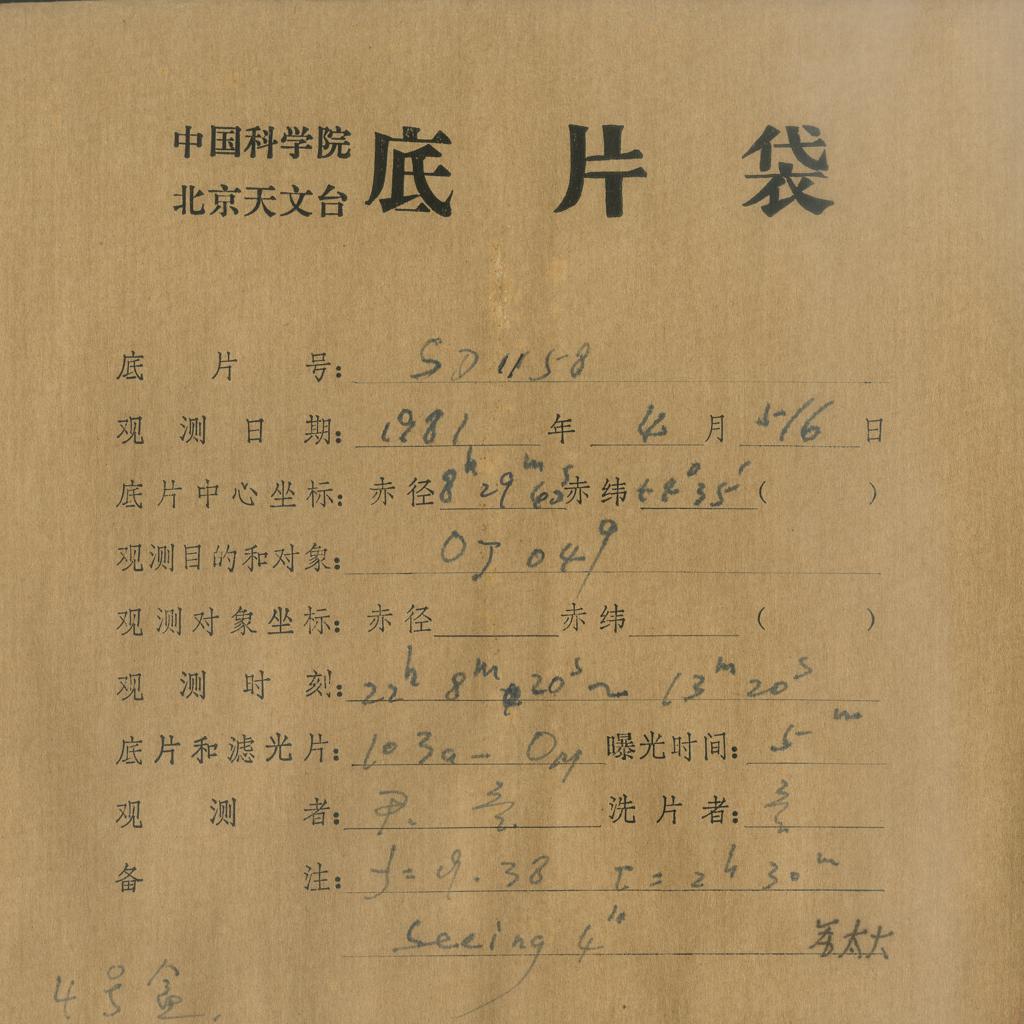 中国科学院
北京天文台
底片袋
底片号: SD1158
观测日期: 1981年4月5/6日
底片中心坐标: 赤径8h29m42s赤纬+4°35′( )
观测目的和对象: OJ 049
观测对象坐标: 赤径 赤纬 ( )
观测时刻: 22h 8m 20s ~ 13m 20s
底片和滤光片: 103a-O 曝光时间: 5m
观测者: 洗片者:
备注: f=9.38 t=2h30m
Seeing 4"
4号盒